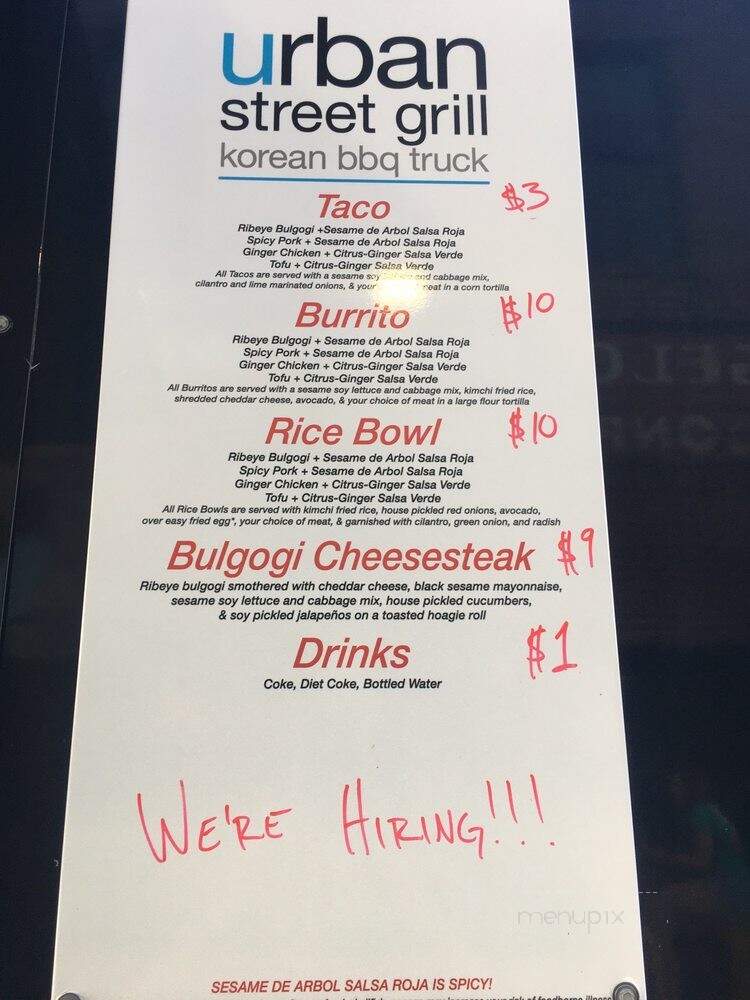 urban
street grill
korean bbq truck
Taco $3
Ribeye Bulgogi +Sesame de Arbol Salsa Roja
Spicy Pork + Sesame de Arbol Salsa Roja
Ginger Chicken + Citrus-Ginger Salsa Verde
Tofu + Citrus-Ginger Salsa Verde
All Tacos are served with a sesame soy and cabbage mix,
cilantro and lime marinated onions, & your meat in a corn tortilla
Burrito $10
Ribeye Bulgogi + Sesame de Arbol Salsa Roja
Spicy Pork + Sesame de Arbol Salsa Roja
Ginger Chicken + Citrus-Ginger Salsa Verde
Tofu + Citrus-Ginger Salsa Verde
All Burritos are served with a sesame soy lettuce and cabbage mix, kimchi fried rice,
shredded cheddar cheese, avocado, & your choice of meat in a large flour tortilla
Rice Bowl $10
Ribeye Bulgogi + Sesame de Arbol Salsa Roja
Spicy Pork + Sesame de Arbol Salsa Roja
Ginger Chicken + Citrus-Ginger Salsa Verde
Tofu + Citrus-Ginger Salsa Verde
All Rice Bowls are served with kimchi fried rice, house pickled red onions, avocado,
over easy fried egg*, your choice of meat, & garnished with cilantro, green onion, and radish
Bulgogi Cheesesteak $9
Ribeye bulgogi smothered with cheddar cheese, black sesame mayonnaise,
sesame soy lettuce and cabbage mix, house pickled cucumbers,
& soy pickled jalapeños on a toasted hoagie roll
Drinks $1
Coke, Diet Coke, Bottled Water
WE'RE HIRING!!!
menupix
SESAME DE ARBOL SALSA ROJA IS SPICY!